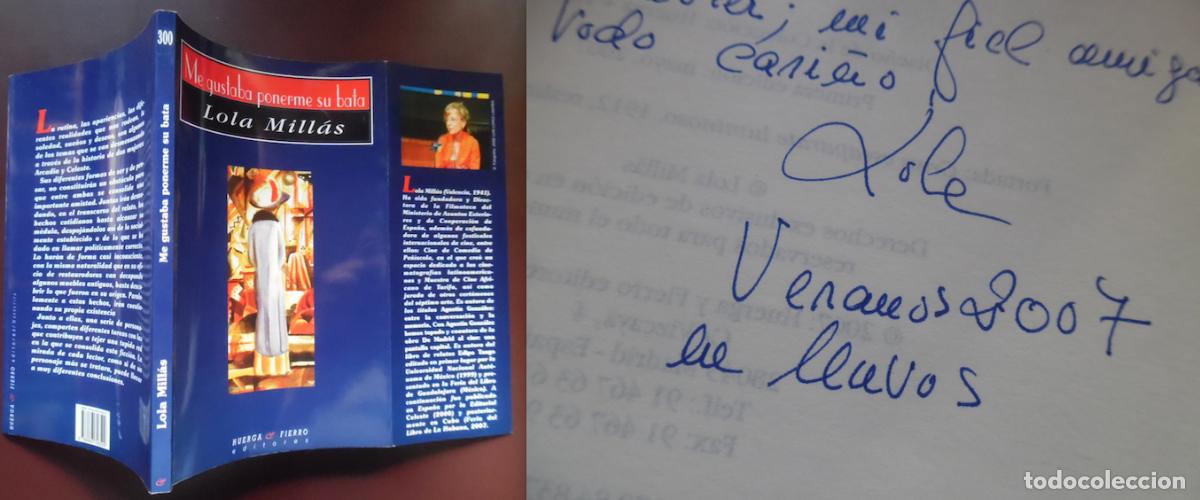 300
Me gustaba ponerme su bata
Lola Millás
Me gustaba ponerme su bata
Lola Millás
HUERGA & FIERRO
editores
La rutina, las apariencias, las dife-
rentes realidades que nos rodean, la
soledad, sueños y deseos, son algunos
de los temas que se van desmenuzando
a través de la historia de dos mujeres
Arcadia y Celeste.
Sus diferentes formas de ser y de pen-
sar, no constituirán un obstáculo para
que entre ambas se consolide una
importante amistad. Juntas irán
dando, en el transcurso del relato, los
hechos cotidianos hasta alcanzar su
médula, despojándolos así de lo social-
mente establecido o de lo que se ha
dado en llamar políticamente correcto.
Lo harán de forma casi inconsciente,
con la misma naturalidad que en su ofi-
cio de restauradores van despojando
algunos muebles antiguos, hasta descu-
brir lo que fueron en su origen.
lelamente a estos hechos, irán
nando su propia existencia
Junto a ellas, una serie de persona-
jes, comparten diferentes tareas con las
que contribuyen a tejer una tupida red
en la que se consolida esta ficción. La
mirada de cada lector, como si de un
personaje más se tratara, puede llevar
a muy diferentes conclusiones.
Lola Millás (Valencia, 1942).
Ha sido fundadora y Direc-
tora de la Filmoteca del
Ministerio de Asuntos Exterio-
res y de Cooperación de
España, además de cofunda-
dora de algunos festivales
internacionales de cine, entre
ellos: Cine de Comedia de
Peñíscola, en el que creó un
espacio dedicado a las cine-
matografías latinoamerica-
nas y Muestra de Cine Afri-
cano de Tarifa, así como
jurado de otros certámenes
del séptimo arte. Es autora de
los títulos Agustín González:
entre la conversación y la
memoria, Con Agustín González
hemos topado y coautora de la
obra De Madrid al cine: una
pantalla capital. Es autora del
libro de relatos Edipo Tango
editado en primer lugar por la
Universidad Nacional Autó-
noma de México (1999) y pre-
sentado en la Feria del Libro
de Guadalajara (México). A
continuación fue publicado
en España por la Editorial
Celeste (2000) y posterior-
mente en Cuba (Feria del
Libro de La Habana, 2002.
mi fiel amiga
Todo cariño,
Lola
Verano 2007
en llavos
todocoleccion